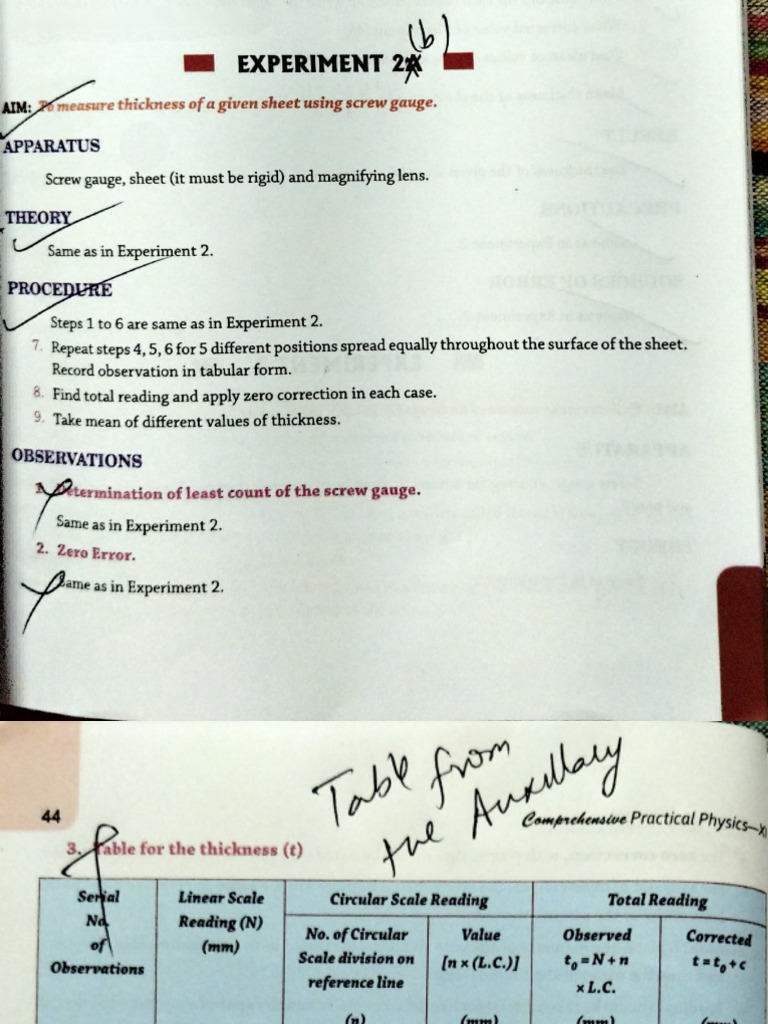 (b)
EXPERIMENT 2A
AIM: To measure thickness of a given sheet using screw gauge.
APPARATUS
Screw gauge, sheet (it must be rigid) and magnifying lens.
THEORY
Same as in Experiment 2.
PROCEDURE
Steps 1 to 6 are same as in Experiment 2.
7. Repeat steps 4, 5, 6 for 5 different positions spread equally throughout the surface of the sheet.
Record observation in tabular form.
8. Find total reading and apply zero correction in each case.
9. Take mean of different values of thickness.
OBSERVATIONS
1. Determination of least count of the screw gauge.
Same as in Experiment 2.
2. Zero Error.
Same as in Experiment 2.
Table from
the Auxillary
44
Comprehensive Practical Physics—XI
3. Table for the thickness (t)
Serial No. of Observations
Linear Scale Reading (N) (mm)
Circular Scale Reading
Total Reading
No. of Circular Scale division on reference line (n)
Value [n × (L.C.)] (mm)
Observed t₀ = N + n × L.C. (mm)
Corrected t = t₀ + c (mm)